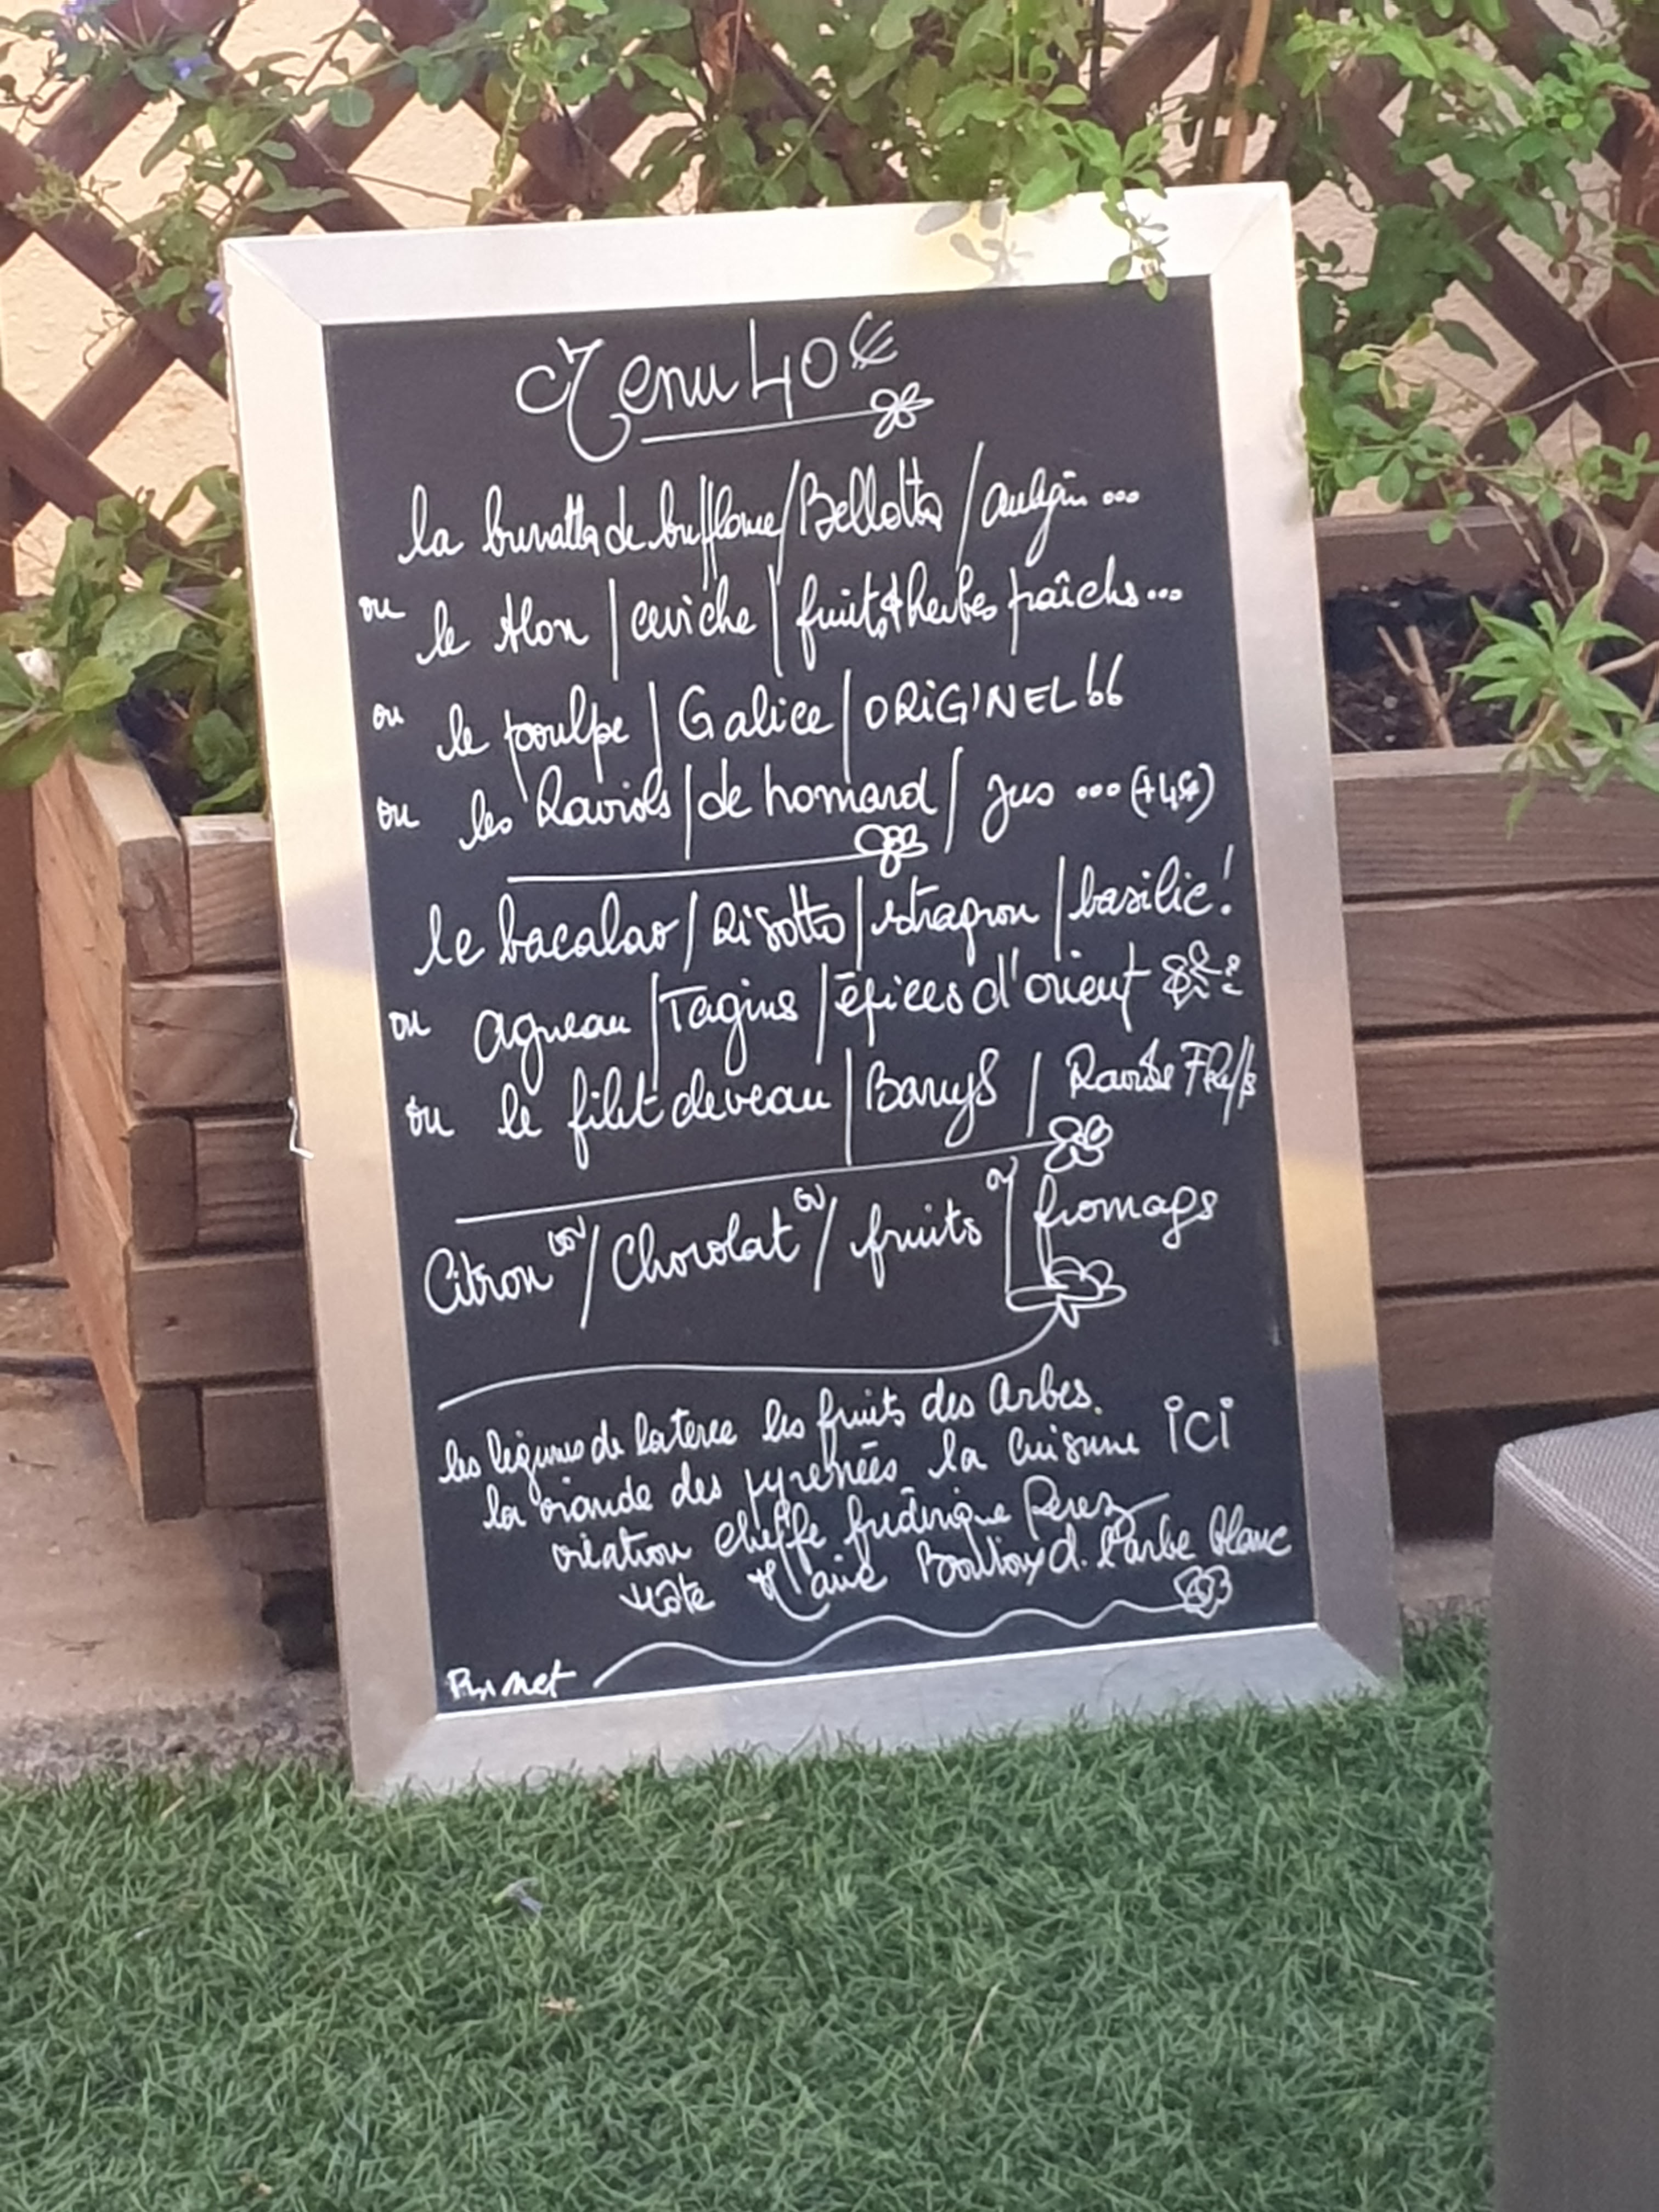 Menu 40€
la burratta de bufflonne / Bellotta / aubgin ...
ou le thon / ceviche / fruits & herbes fraîchs ...
ou le poulpe / Galice / ORiGiNEL !!
ou les Raviols / de homard / jus ... (+4€)
le bacalao / Risotto / estragron / basilic !
ou agneau / Tagins / épices d'orient
ou le filet de veau / Barrys /
Citron ou / Chocolat ou / fruits ou / fromags
les légumes de la terre les fruits des Arbes.
la viande des pyrenées la Cuisine iCi
création cheffe frédérique Perez
Hôte d. l'arbe blanc
net